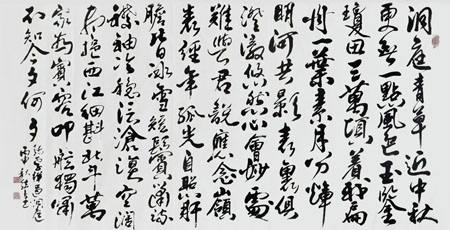 洞庭青草近中秋
更無一點風色玉鑒
瓊田三萬頃著我扁
舟一葉素月分輝
明河共影表裏俱
澄澈悠然心會妙處
難與君說應念嶺
表經年孤光自照肝
膽皆冰雪短鬢蕭疏
襟袖冷穩泛滄溟空闊
盡挹西江細斟北斗萬
象為賓客叩舷獨嘯
不知今夕何夕
張孝祥過洞庭